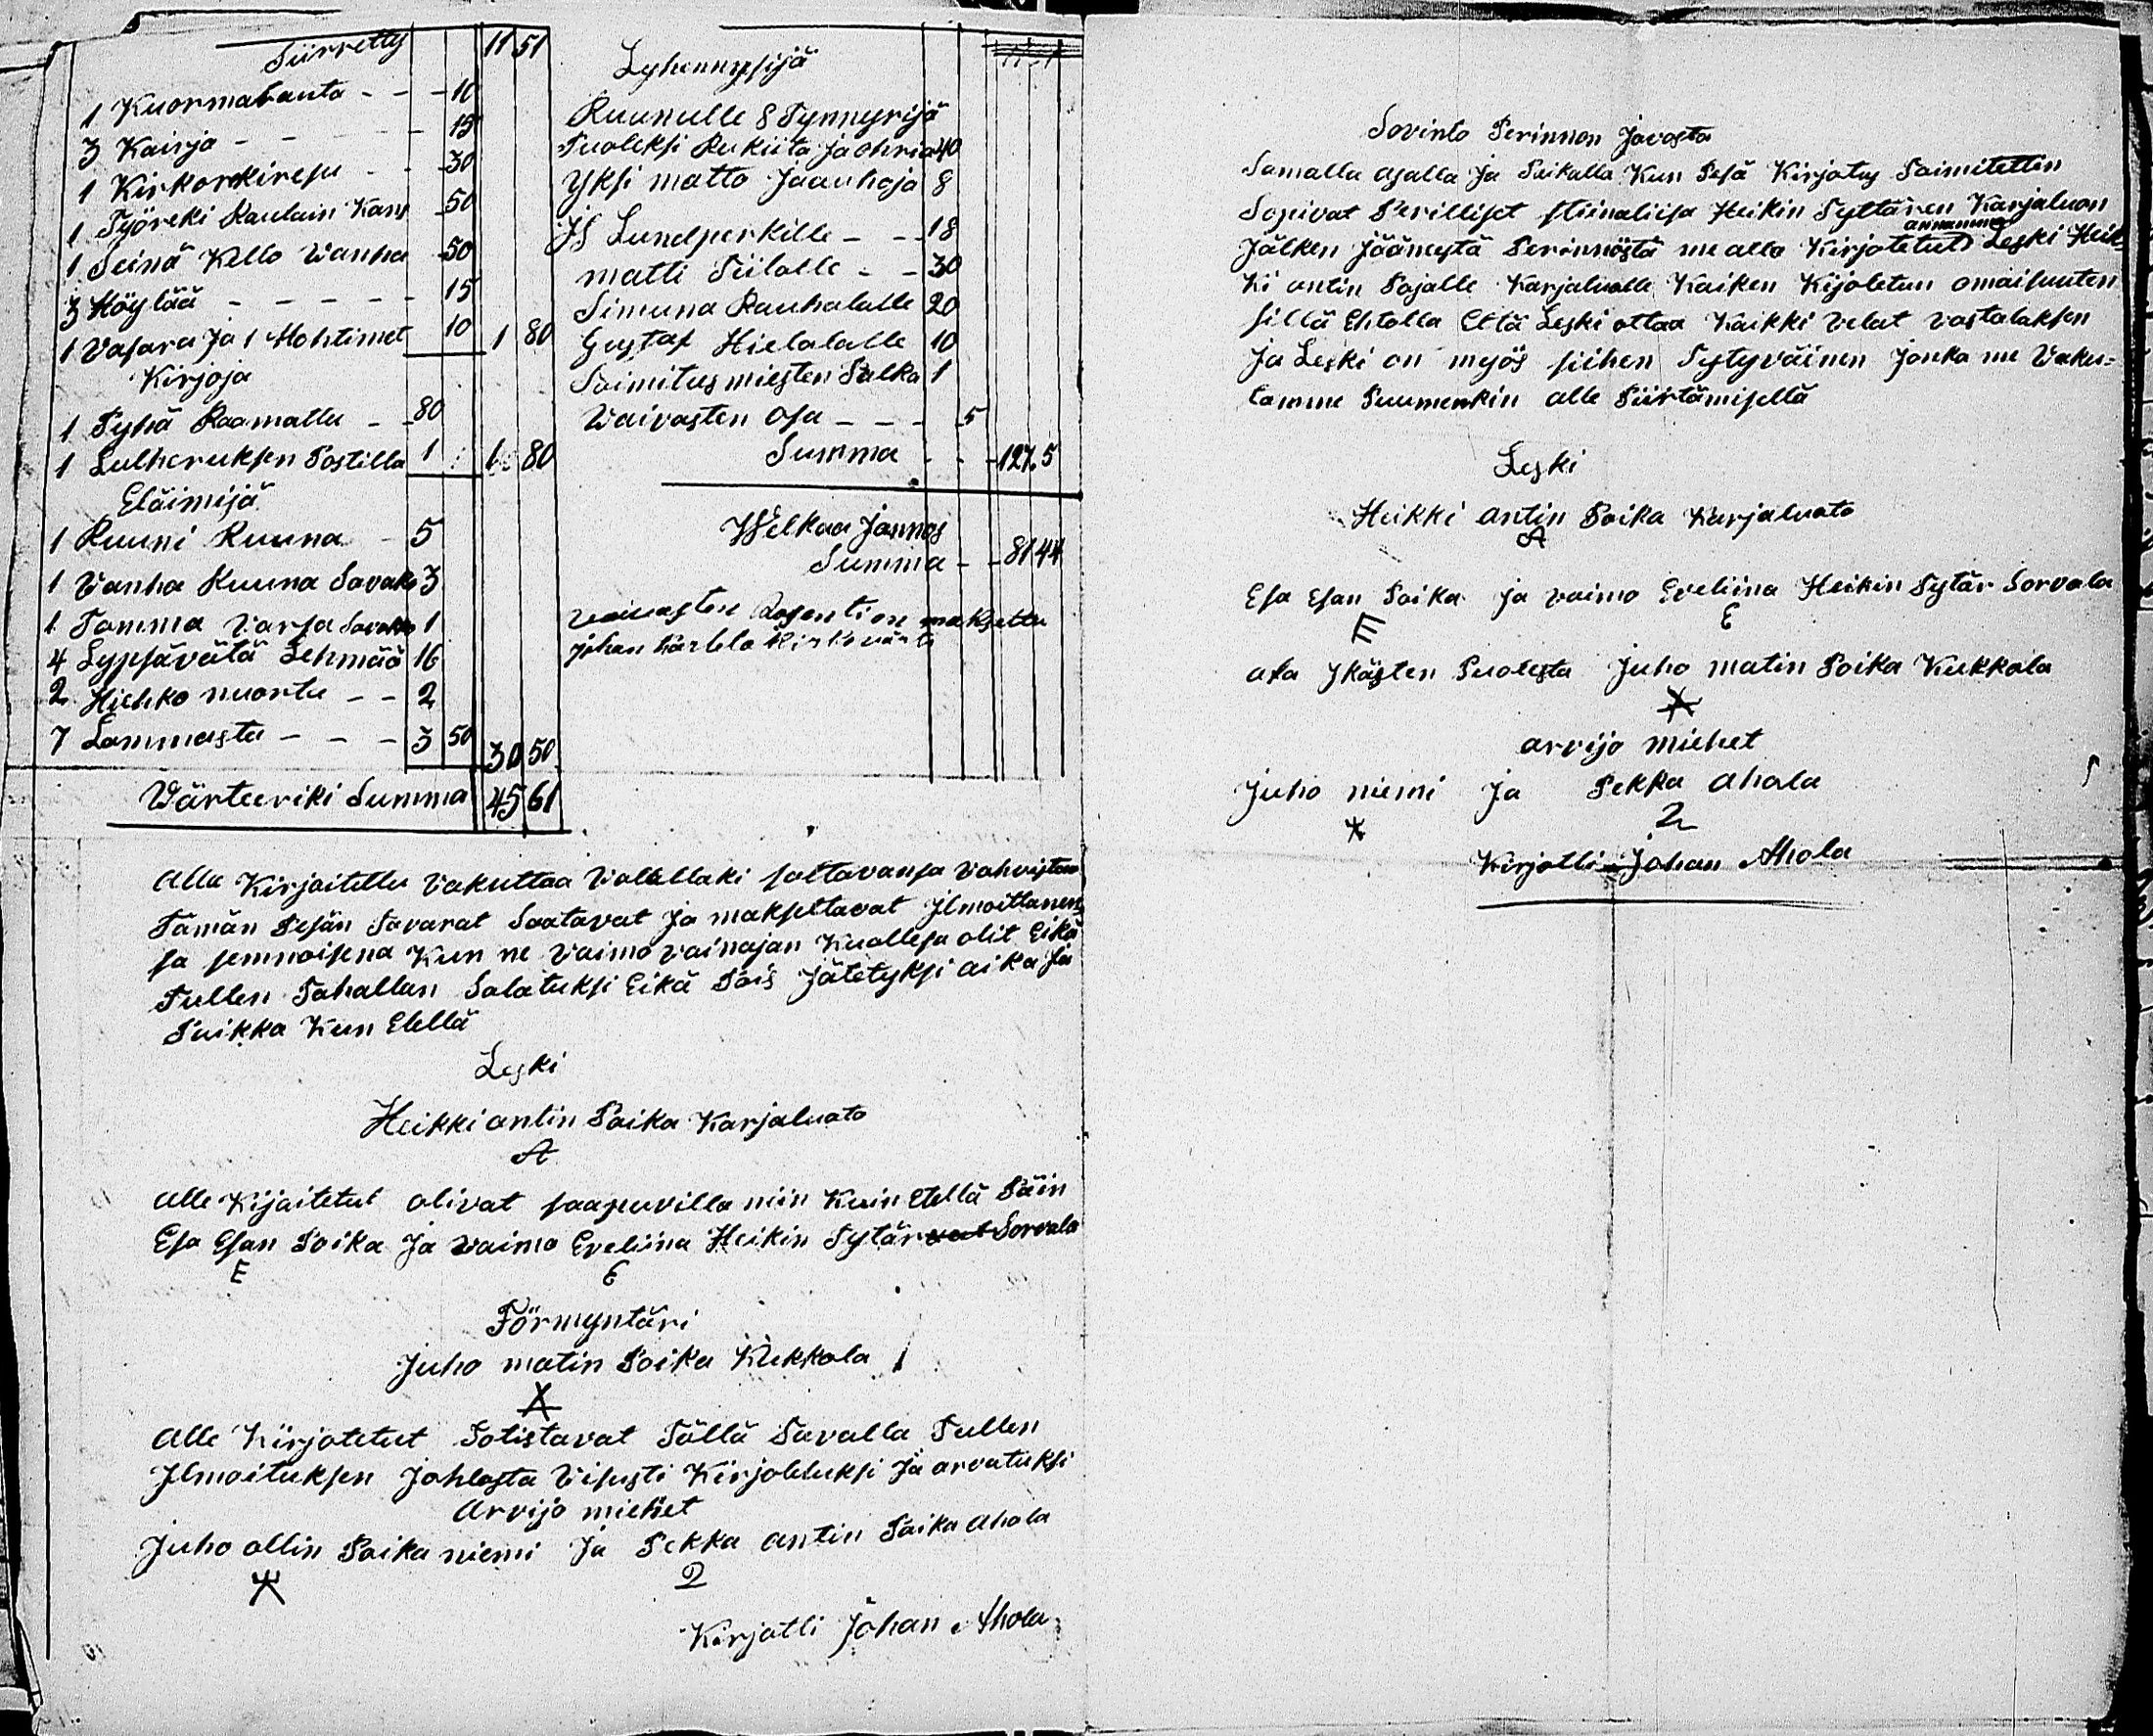 Siirretty 11 51
1 Kuormalauta - - - 10
3 Kairja - - - - 15
1 Kirkorekiresu - - 30
1 Työreki Raulain Kans 50
1 Seinä Kello Vanha 50
3 Höylää - - - - - 15
1 Vasara Ja 1 Hohtimet 10 1 80
Kirjoja
1 Pyhä Raamattu - - 80
1 Lutheruksen Postilla 1 1 80
Eläimijä
1 Ruuni Ruuna - 5
1 Vanha Ruuna 3
1 Tamma Varsa 1
4 Lypsävätä Lehmää 16
2 Hiehko nuorta - - 2
7 Lammasta - - - 3 50 30 50
Värteeriki Summa 45 61
Lyhennysijä
Ruunulle 8 Tynnyrijä
Puoleksi Rukiita Ja ohria 40
Yksi matto Jauhoja 8
JS Lundperkille - - - 18
matti Piilolle - - 30
Simuna Rauhalalle 20
Gustaf Hietalalle 10
Toimitusmiesten Palka 1
Vaivasten Osa - - - 5
Summa - - - 127.5
Velkaa Jannos
Summa - - 81 44
vaivasten on maksettu
johan
Alla Kirjoitettu Vakuttaa Valallaki Vahvistaa
Tämän Pesän Tavarat Saatavat Ja maksettavat Ilmoittanen,
sa semnoisena Kun ne Vaimo vainajan Kuollesa olit Eikä
Tullen Tahallan Salatuksi Eikä Pois Jätetyksi aika Ja
Paikka Kun Etellä
Leski
Heikki antin Poika Karjaluoto
A
alle Kijoitetut olivat saapuvilla niin Kuin Etellä Päin
Esa Esan Poika Ja Vaimo Eveliina Heikin Tytär Sorvala
E E
Förmyntäri
Juho matin Poika Kukkola
X
Alle Kirjotetut Totistavat Tällä Tavalla Tullen
Ilmoituksen Johtosta Visusti Kirjotetuksi Ja arvatuksi
Arvijo miehet
Juho ollin Poika niemi Ja Pekka antin Poika Ahola
2
Kirjotti Johan Ahola
Sovinto Perinnon Javosta
Samalla ajalla Ja Paikalla Kun Pesä Kirjotus Toimitettin
Sopivat Perilliset Stiinaliisa Heikin Tyttären Karjaluon
annamme
Jälken Jäänestä Perinnöstä me alla Kirjotetut Leski Heik-
Ki antin Pojalle Karjaluolle Kaiken Kijotetun omaisuuten
sillä Ehtolla Että Leski ottaa Kaikki Velat vastataksen
Ja Leski on myös siihen Tytyväinen Jonka me Vaku=
tamme Puumerkin alle Piirtämisellä
Leski
Heikki antin Poika Karjaluoto
A
Esa Esan Poika Ja vaimo Eveliina Heikin Tytär Sorvala
E E
ala Ikästen Puolesta Juho matin Poika Kukkola
arvijo miehet
Juho niemi Ja Pekka Ahola
2
Kirjotti Johan Ahola